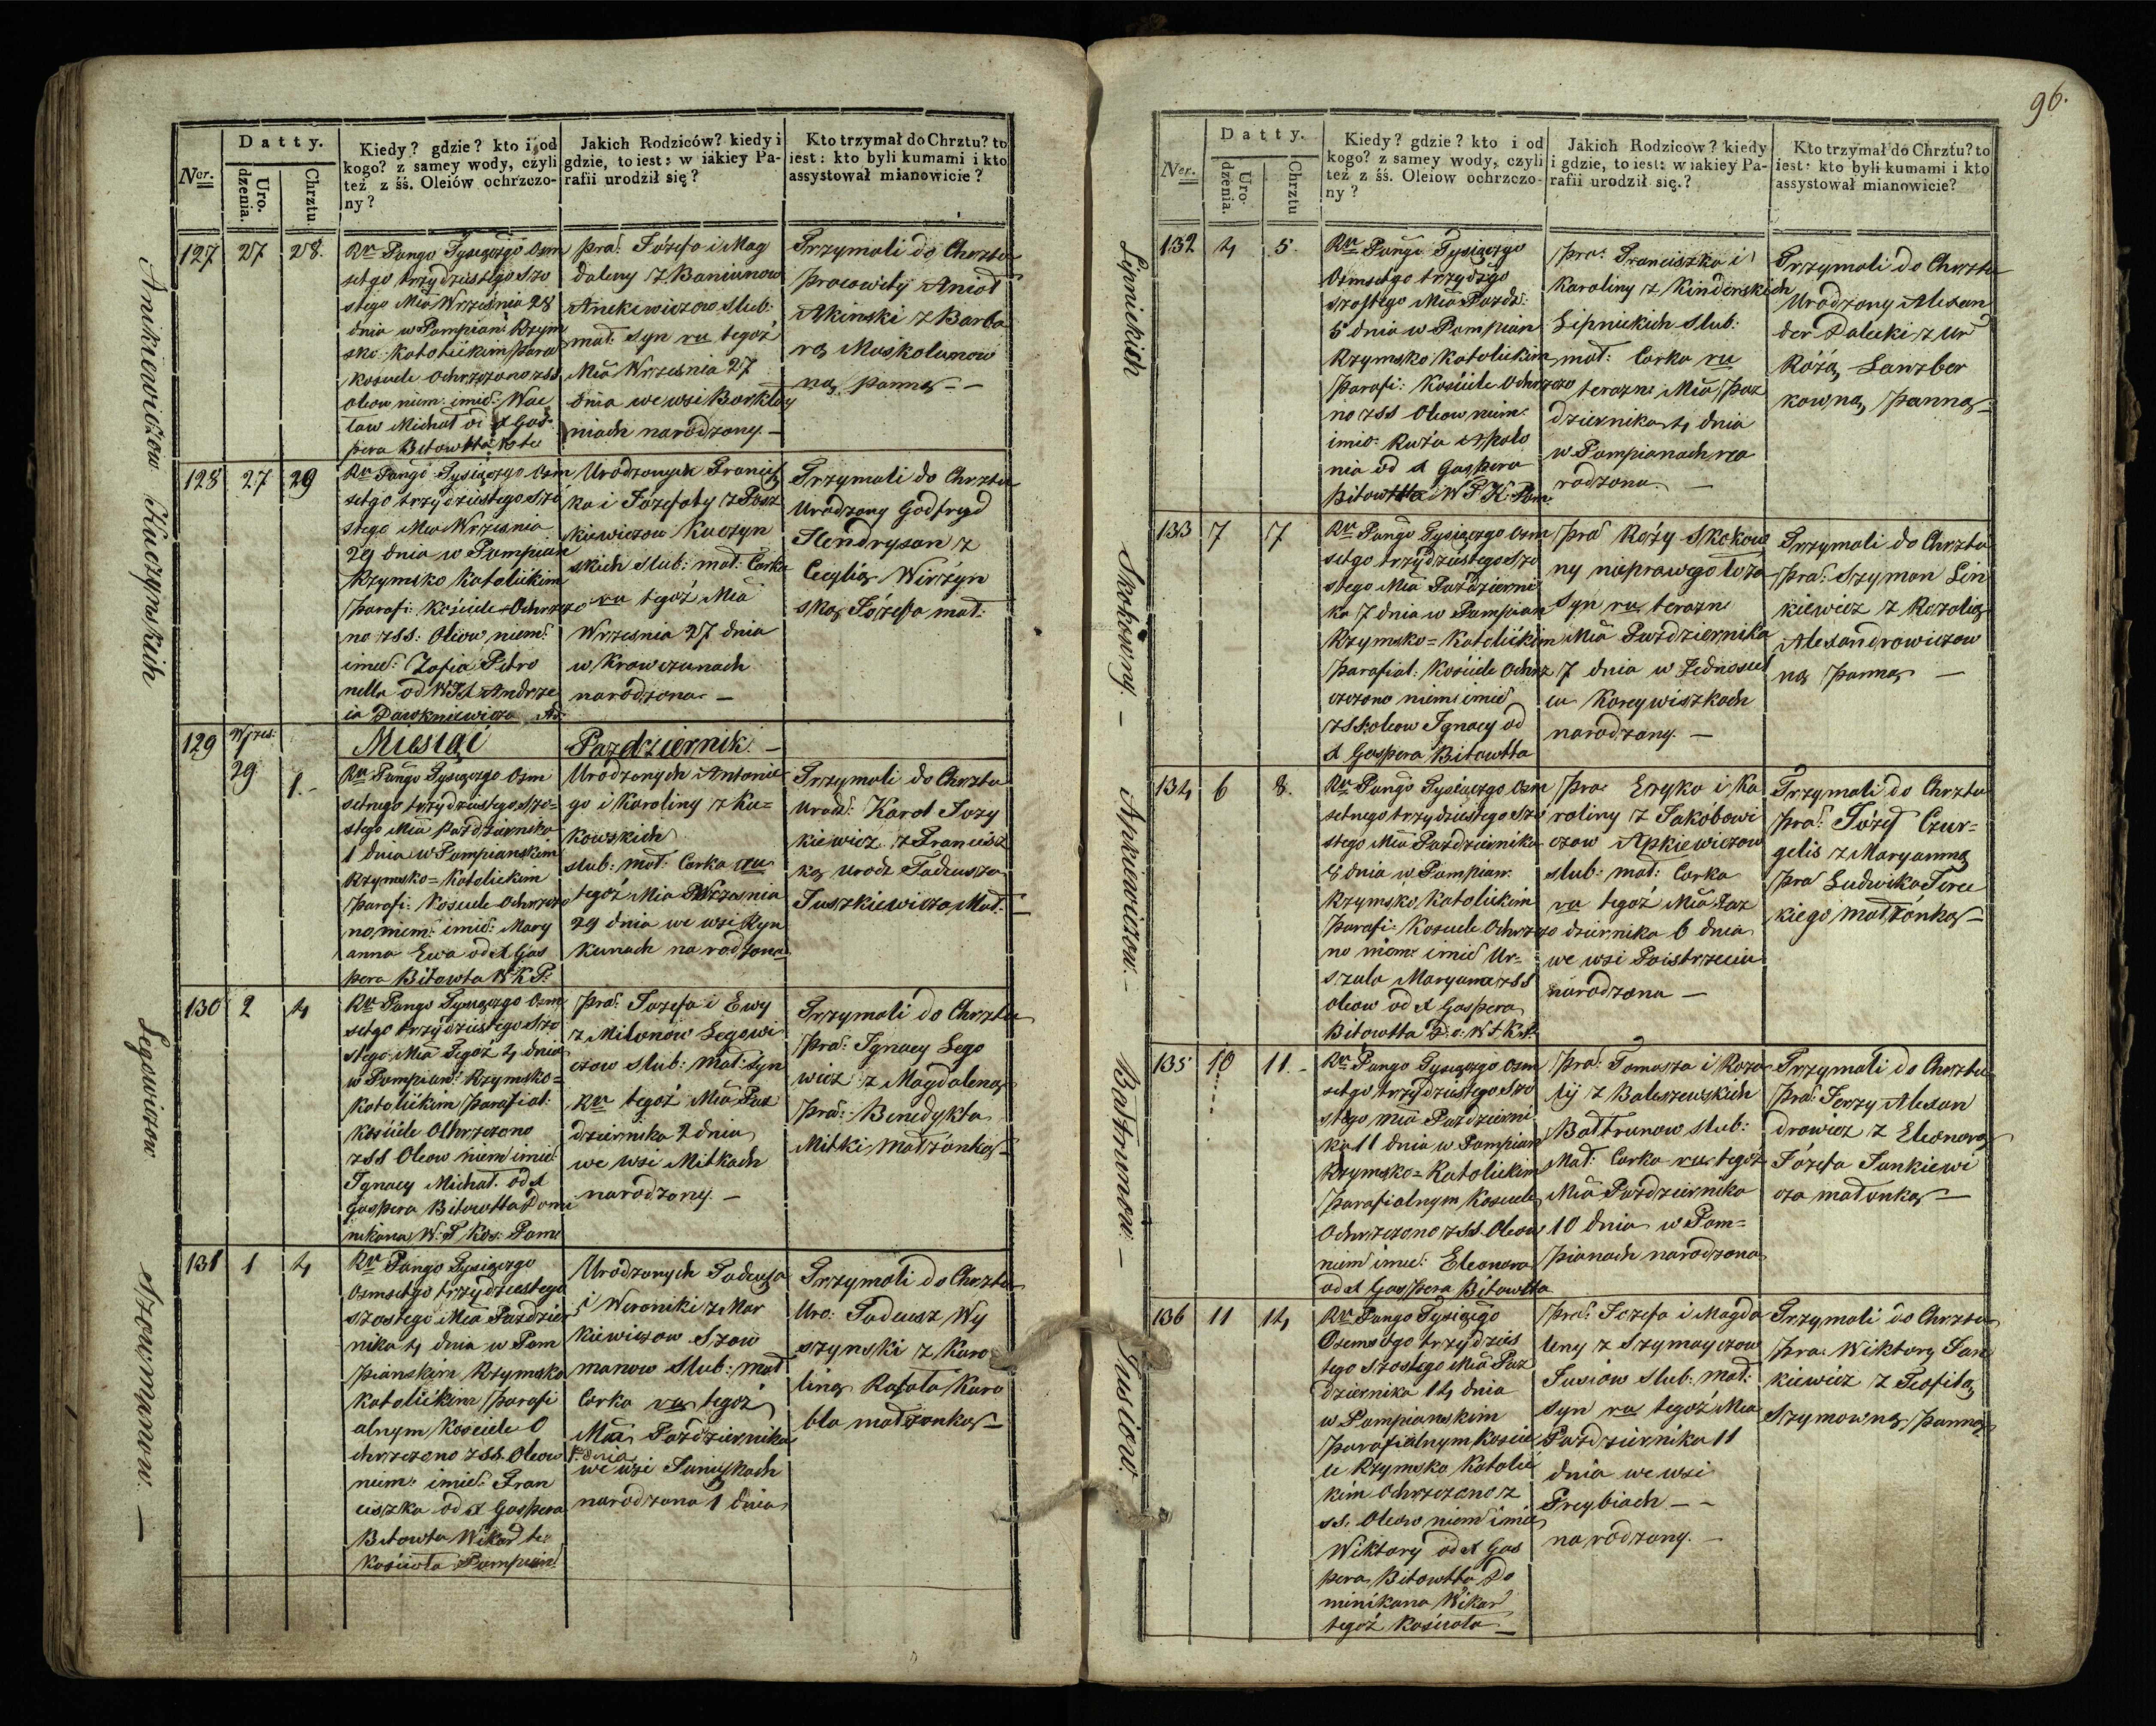 Datty.
Ner.
Uro.
dzenia.
Chrztu.
Kiedy? gdzie? kto i od
kogo? z samey wody, czyli
też z śś. Oleiów ochrzczo-
ny?
Jakich Rodziców? kiedy i
gdzie, to iest: w iakiey Pa-
rafii urodził się?
Kto trzymał do Chrztu? to
iest: kto byli kumami i kto
assystował mianowicie?
Anikiewiczow
127
27
28.
Rn Pańgo Tysiączgo Osm
setgo trzydziestego Szo
stego Mca Września 28
dnia w Pompian: Rzym
sko Katolickim Para
Kosciele Ochrzczono z SS
Oleow niem: imie: Wac
ław Michał od X Gas
pera Bitowtta
Pra: Józefa i Mag
daleny z Baniunow
Anikiewiczow Slub:
mał: Syn ru tegoż
Mca Września 27
dnia we wsi Borkłoy
niach narodzony. —
Trzymali do Chrztu
Pracowity
Akinski z Barba
rą Moskolunow
ną panną - -
Kuczynskich
128
27
29
Rn Pańgo Tysiączgo Osm
setgo trzydziestego Szo
stego Mca Września
29 dnia w Pompian
Rzymsko Katolickim
Parafi: Kościele Ochrzczo
no z SS: Oleow niem:
imie: Zofia Petro
nella od Andrze
ia
Urodzonych Francisz
ka i Jozefaty z Posz
kiewiczow Kuczyn
skich slub: mał: Corka
ru tegoż Mca
Wrzesnia 27 dnia
w Krowczunach
narodzona. —
Trzymali do Chrztu
Urodzony Godfryd
Hendryson z
Cecylią Wirżyn
ską Józefa mał:
Miesiąc Pazdziernik. —
129
Wrzes:
29
1. -
Rn Pańgo Tysiączgo Osm
setnego trzydziestego Szo=
stego Mca Pazdziernika
1 dnia w Pompianskim
Rzymsko=Katolickim
Parafi: Kosciele Ochrzczo
no niem: imie: Mary
anna Ewa od X Gas
pera Bitowta W K P:
Urodzonych Antonie
go i Karoliny z Ku=
kowskich
slub: mał: Corka ru
tegoż Mca Wrzesnia
29 dnia we wsi Ryn
kunach narodzona
Trzymali do Chrztu
Urodz: Karol Jozy
kiewicz z Francisz
ką Urodz Tadeusza
Juszkiewicza Mał: —
Legowiczow
130
2
4
Rn Pańgo Tysiączgo Osm
setgo trzydziestego Szo
stego Mca Tegoż 4 dnia
w Pompian: Rzymsko=
Katolickim Parafial:
Kosciele Ochrzczono
z SS Oleow niem imie:
Ignacy Michał od X
Gaspera Bitowtta Domi
nikana W: P Kos: Pomp
Pra: Jozefa i Ewy
z Milunow Legowi
czow Slub: Mał: Syn
Rn tegoż Mca Paz
dziernika 2 dnia
we wsi Mitkach
narodzony. —
Trzymali do Chrztu
Pra: Ignacy Lego
wicz z Magdaleną
Pra: Benedykta
Mitki Małżonką —
Szowmanow. —
131
1
4
Rn Pańgo Tysiączgo
Osmsetgo trzydziestego
szostego Mca Pazdzier
nika 4 dnia w Pom
pianskim Rzymsko
Katolickim Parafi
alnym Kosciele O
chrzczono z SS. Oleow
niem: imie: Fran
ciszka od X Gaspera
Bitowta Wikar te:
Kościoła Pompian:
Urodzonych Tadeusza
i Weroniki z Mar
kiewiczow Szow
manow Slub: mał
Corka ru tegoż
Mca Pazdziernika
1 dnia
we wsi Juniszkach
narodzona 1 dnia
Trzymali do Chrztu
Uro: Tadeusz Wy
szynski z Karo
liną Rafała Karo
bla małżonką —
96.
Datty.
Ner.
Uro-
dzenia.
Chrztu
Kiedy? gdzie? kto i od
kogo? z samey wody, czyli
też z śś. Oleiow ochrzczo-
ny?
Jakich Rodzicow? kiedy
i gdzie, to iest: w iakiey Pa-
rafii urodził się.?
Kto trzymał do Chrztu? to
iest: kto byli kumami i kto
assystował mianowicie?
Lipnickich
132
4
5.
Rn Pańgo Tysiączgo
Osmsetgo trzydzgo
szostego Mca Pazdz:
5 dnia w Pompian
Rzymsko Katolickim
Parafi: Kościele Ochrzczo
no z SS Oleow niem:
imie: Ruża Appolo
nia od X Gaspera
Bitowtta W P K: Pom:
Pra: Franciszka i
Karoliny z Kinderskich
Lipnickich Slub:
mał: Corka ru
terazn: Mca Paz
dziernika 4 dnia
w Pompianach na
rodzona. —
Trzymali do Chrztu
Urodzony Alexan
der Dalecki z Ur
Różą Lanzber
kowną Panną —
Skokowny —
133
7
7
Rn Pańgo Tysiączgo Osm
setgo trzydziestego Szo
stego Mca Pazdzierni
ka 7 dnia w Pompian
Rzymsko=Katolickim
Parafial: Kościele Ochrz
czono niem: imie
z SS: oleow Ignacy od
X Gaspera Bitowtta
Pra Roży Skokow
ny nieprawego łoża
Syn ru terazn:
Mca Pazdziernika
7 dnia w Jednosiel
cu Koreywiszkach
narodzony. —
Trzymali do Chrztu
Pra: Szymon Lin
kiewicz z Rozalią
Alexandrowiczow
ną Panną —
Apkiewiczow. —
134
6
8.
Rn Pańgo Tysiączgo Osm
setnego trzydziestego Szo
stego Mca Pazdziernika
8 dnia w Pompian:
Rzymsko Katolickim
Parafi: Kosciele Ochrzczo
no niem: imie Ur=
szula Maryanna z SS
Oleow od X Gaspera
Bitowtta
Pra: Eryka i Ka
roliny z Jakóbowi
czow Apkiewiczow
slub: mał: Corka
ru tegoż Mca Paz
dziernika 6 dnia
we wsi Poistrzeciu
narodzona —
Trzymali do Chrztu
Pra: Józef Czur=
gelis z Maryanną
Pra Ludwika Terec
kiego małżonką —
Bałtrunow. —
135
10
11. -
Rn Pańgo Tysiączgo Osm
setgo trzydziestego Szo
stego Mca Pazdzierni
ka 11 dnia w Pompian
Rzymsko=Katolickim
Parafialnym Kosciele
Ochrzczono z SS. Oleow
niem imie: Eleonora
od X Gaspera Bitowtta
Pra: Tomasza i Roza
lij z Baleszewskich
Bałtrunow slub:
Mał: Corka ru tegoż
Mca Pazdziernika
10 dnia w Pom=
pianach narodzona
Trzymali do Chrztu
Pra: Jerzy Alexan
drowicz z Eleonorą
Józefa Jankiewi
cza małonką —
Jusiow.
136
11
14
Rn Pańgo Tysiącgo
Osmsetgo trzydzies
tego szostego Mca Paz
dziernika 14 dnia
w Pompianskim
Parafialnym Koscie
le Rzymsko Katolic
kim Ochrzczono z
SS. Oleow niem imie
Wiktory od X Gas
pera Bitowtta Do
minikana Wikar
tegoż Kościoła —
Pra: Jozefa i Magda
leny z Szymayczow
Jusiow Slub: mał:
Syn ru tegoż Mca
Pazdziernika 11
dnia we wsi
Preybiach - -
narodzony. —
Trzymali do Chrztu
Pra: Wiktory Jan
kiewicz z Teofilą
Szymowną Panną